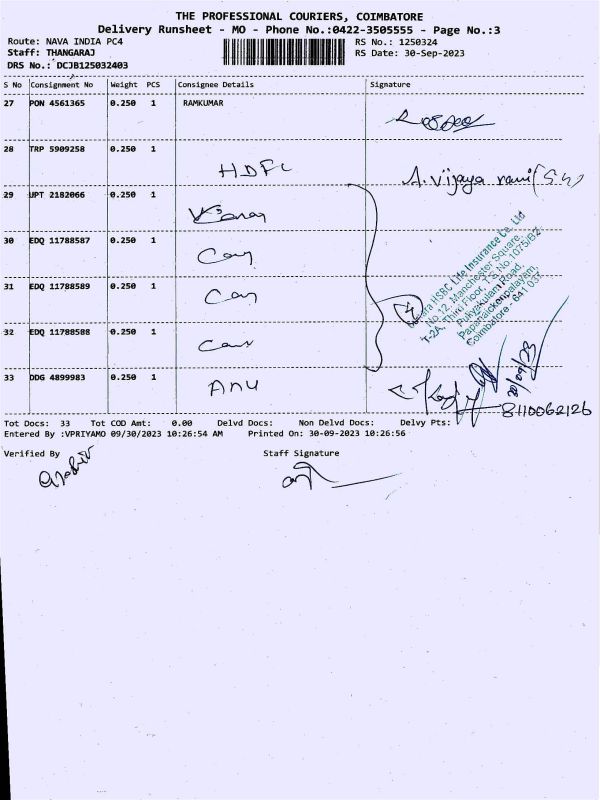 THE PROFESSIONAL COURIERS, COIMBATORE
Delivery Runsheet - MO - Phone No.:0422-3505555 - Page No.:3
Route: NAVA INDIA PC4 RS No.: 1250324
Staff: THANGARAJ RS Date: 30-Sep-2023
DRS No.: DCJB125032403
S No Consignment No Weight PCS Consignee Details Signature
27 PON 4561365 0.250 1 RAMKUMAR
28 TRP 5909258 0.250 1
HDFC A. Vijaya rani
29 UPT 2182066 0.250 1
30 EDQ 11788587 0.250 1
31 EDQ 11788589 0.250 1
32 EDQ 11788588 0.250 1
4
HSBC Life Insurance Co. Ltd
No.12, Manchester Square,
T-2A, Third Floor, T.S.No.1075/B2
Puliyakulam Road,
Papanaickenpalayam,
Coimbatore - 641 037
33 DDG 4899983 0.250 1
Anu
30/09/23
8110062126
Tot Docs: 33 Tot COD Amt: 0.00 Delvd Docs: Non Delvd Docs: Delvy Pts:
Entered By :VPRIYAMO 09/30/2023 10:26:54 AM Printed On: 30-09-2023 10:26:56
Verified By Staff Signature